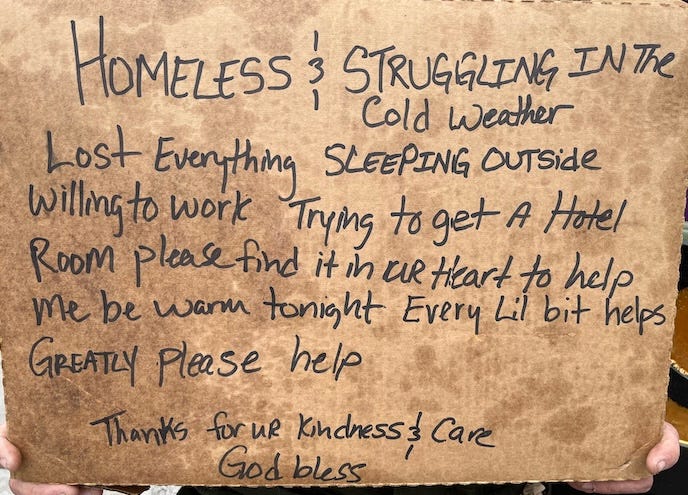 HOMELESS & STRUGGLING IN The
Cold Weather
Lost Everything SLEEPING OUTSIDE
Willing to work Trying to get A Hotel
Room please find it in UR Heart to help
me be warm tonight Every Lil bit helps
GREATLY Please help
Thanks for UR Kindness & Care
God bless